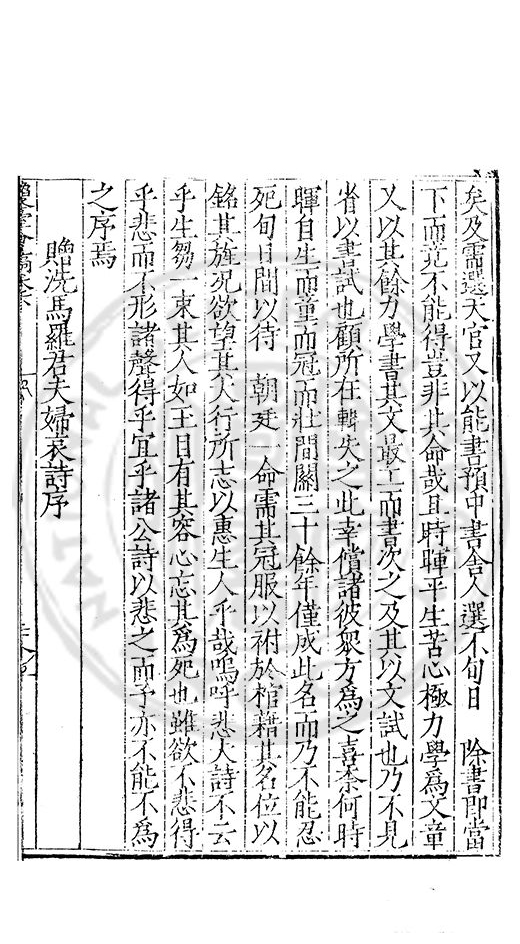 矣及需選天官又以能書預中書舍人選不旬日　除書即當
下而竟不能得豈非其命哉且時暉平生苦心極力學為文章
又以其餘力學書其文最工而書次之及其以文試也乃不見
省以書試也顧所在輙失之此幸償諸彼眾方為之喜柰何時
暉自生而童而冠而壯間關三十餘年僅成此名而乃不能忍
死旬日間以待　朝廷一命需其冠服以祔於棺藉其名位以
銘其旌况欲望其大行所志以惠生人乎哉嗚呼悲夫詩不云
乎生芻一束其人如玉目有其容心忘其為死也雖欲不悲得
乎悲而不形諸聲得乎宜乎諸公詩以悲之而予亦不能不為
之序焉
贈洗馬羅君夫婦哀詩序